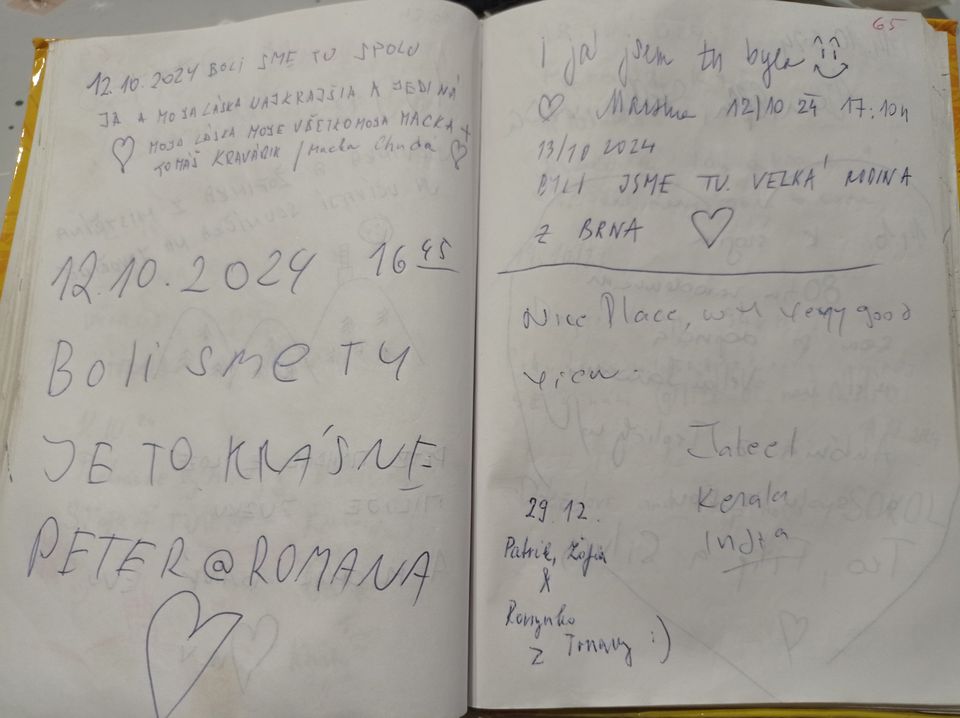 12.10.2024 BOLI SME TU SPOLU
JA A MOJA LÁSKA NAJKRAJŠIA A JEDINÁ
MOJA LÁSKA MOJE VŠETKO MOJA MACKA
TOMÁŠ KRAVÁRIK / Macka Chudá
12.10.2024 16 45
Boli sme TU
JE TO KRÁSNE
PETER @ ROMANA
65
i já jsem tu byla
12/10 24 17.10h
13/10 2024
BYLI JSME TU VELKÁ RODINA
Z BRNA
Nice Place, with very good
view.
Kerala
India
29.12.
Patrik, Žofia
&
Z Trnavy :)